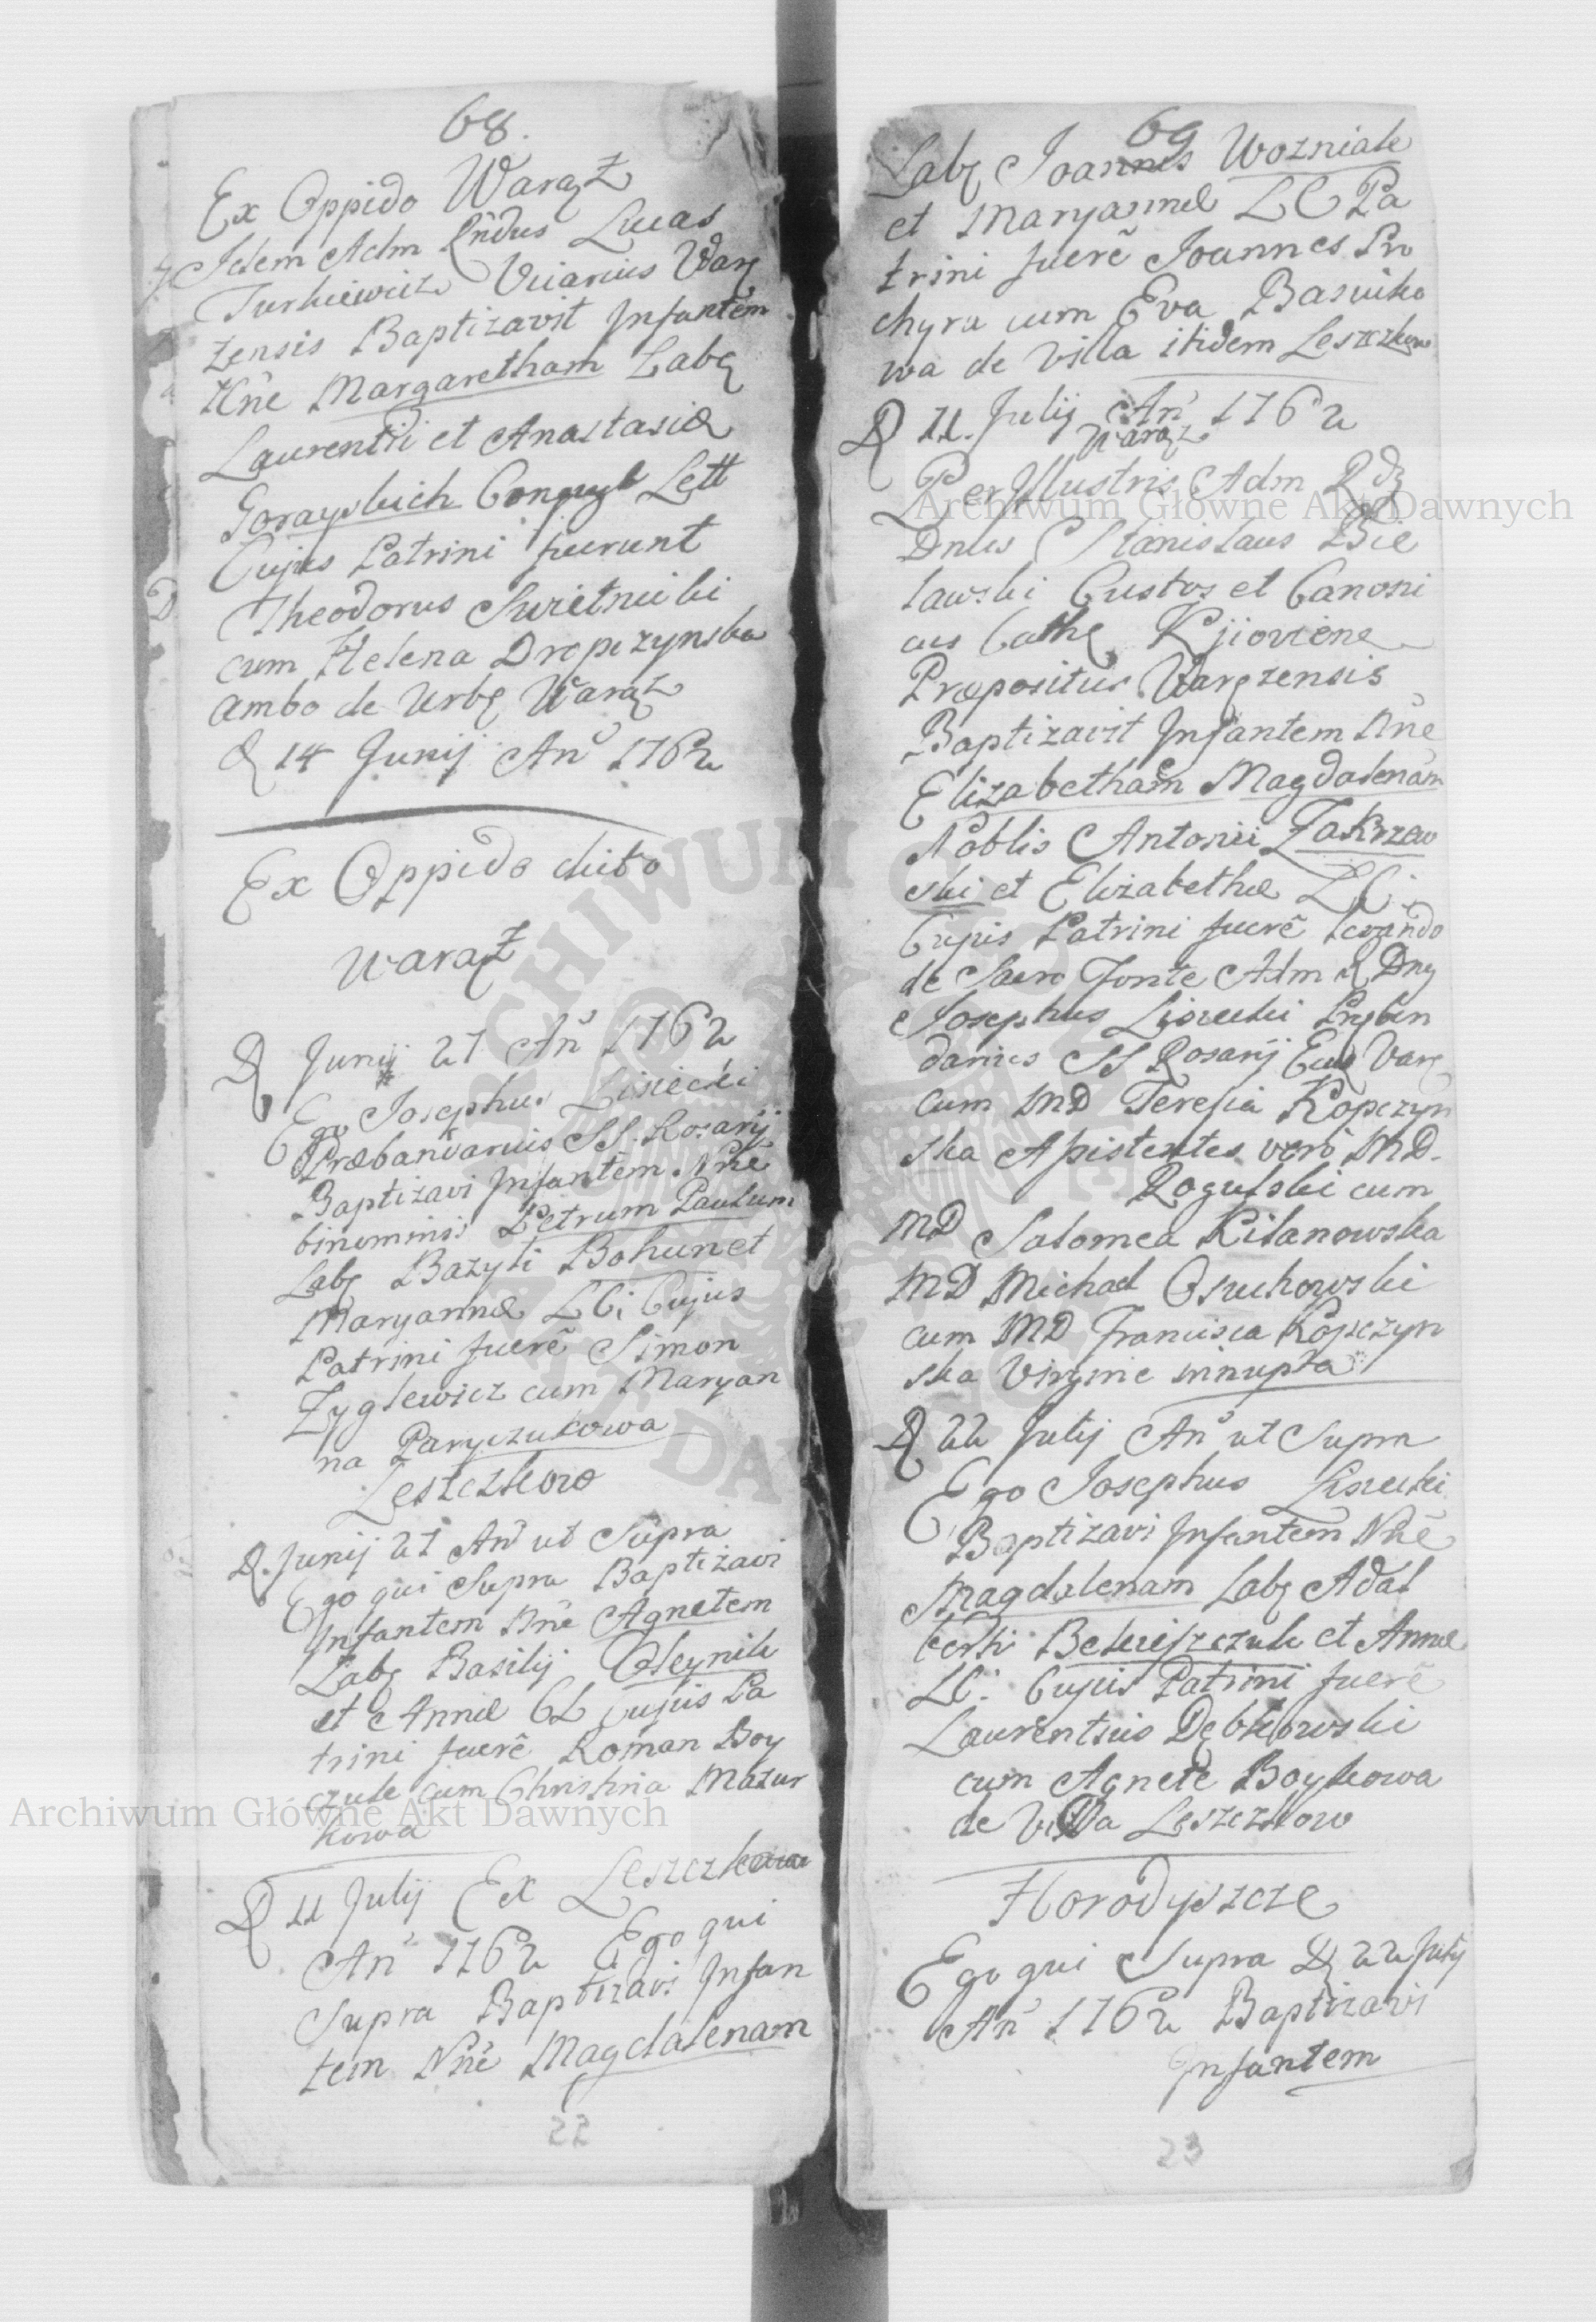 68.
Ex Oppido Waręż
Idem Adm Rńdus Lucas
Turkiewicz Vicarius Warę
żensis Baptizavit Infantem
Nñe Margaretham Labę
Laurentii et Anastasiæ
Gorayskich Coniugl Lett
Cujus Patrini fuerunt
Theodorus Swietnicki
cum Helena Dropczynska
ambo de Urbę Warąż
D 14 Junij An 1762
Ex Oppido dicto
Warąż
D Junij 21 An 1762
Ego Josephus Lisiecki
Præbandarius SS. Rosarij
Baptizavi Infantem Nñe
binominis Petrum Paulum
Labę Bazyli Bohun et
Maryannæ LC; Cujus
Patrini fuerẽ Simon
Zyglewicz cum Maryan
na Paryczukowa
Leszczkow
D. Junij 21 An ut Supra
Ego qui Supra Baptizavi
Infantem Nñe Agnetem
Labę Basilij Oleynik
et Annæ CL Cujus Pa
trini fuerẽ Roman Boy
czuk cum Christina Mazur
kowa
D 11 Julij Ex Leszczkowa
An 1762 Ego qui
Supra Baptizavi Infan
tem Nñe Magdalenam
22
69
Labę Joannis Wozniak
et Maryannæ LC Pa
trini fuerẽ Joannes Pro
chyra cum Eva Basiuko
wa de Villa itidem Leszczkow
D 11. Julij An 1762
Warąż
Per Illustris Adm Rdę
Dnus Stanislaus Bie
lawski Custos et Canoni
cus Cathę Kijoviene
Præpositus Waręzensis
Baptizavit Infantem Nñe
Elizabetham Magdalenam
Noblis Antonii Zakrzew
ski et Elizabethæ LC;
Cujus Patrini fuerẽ levando
de Sacro Fonte Adm R Dny
Josephus Lisiecki Prybin
darius SS Rosarij Eccę Varę
cum MD Teresia Kopczyn
ska Assistentes vero MD.
Rogulski cum
MD Salomea Kilanowska
MD Michael Osuchowski
cum MD Francisca Kopczyn
ska Virgine innupta
D 22 Julij An ut Supra
Ego Josephus Lisiecki
Baptizavi Infantem Nñe
Magdalenam Labę Adal
berti Bekieszczuk et Annæ
LC. Cujus Patrini fuerẽ
Laurentius Dębkowski
cum Agnete Boykowa
de Villa Leszczkow
Horodyszcze
Ego qui Supra D 22 Julij
An 1762 Baptizavi
Infantem
23
Archiwum Główne Akt Dawnych
Archiwum Główne Akt Dawnych
ARCHIWUM GŁÓWNE AKT DAWNYCH